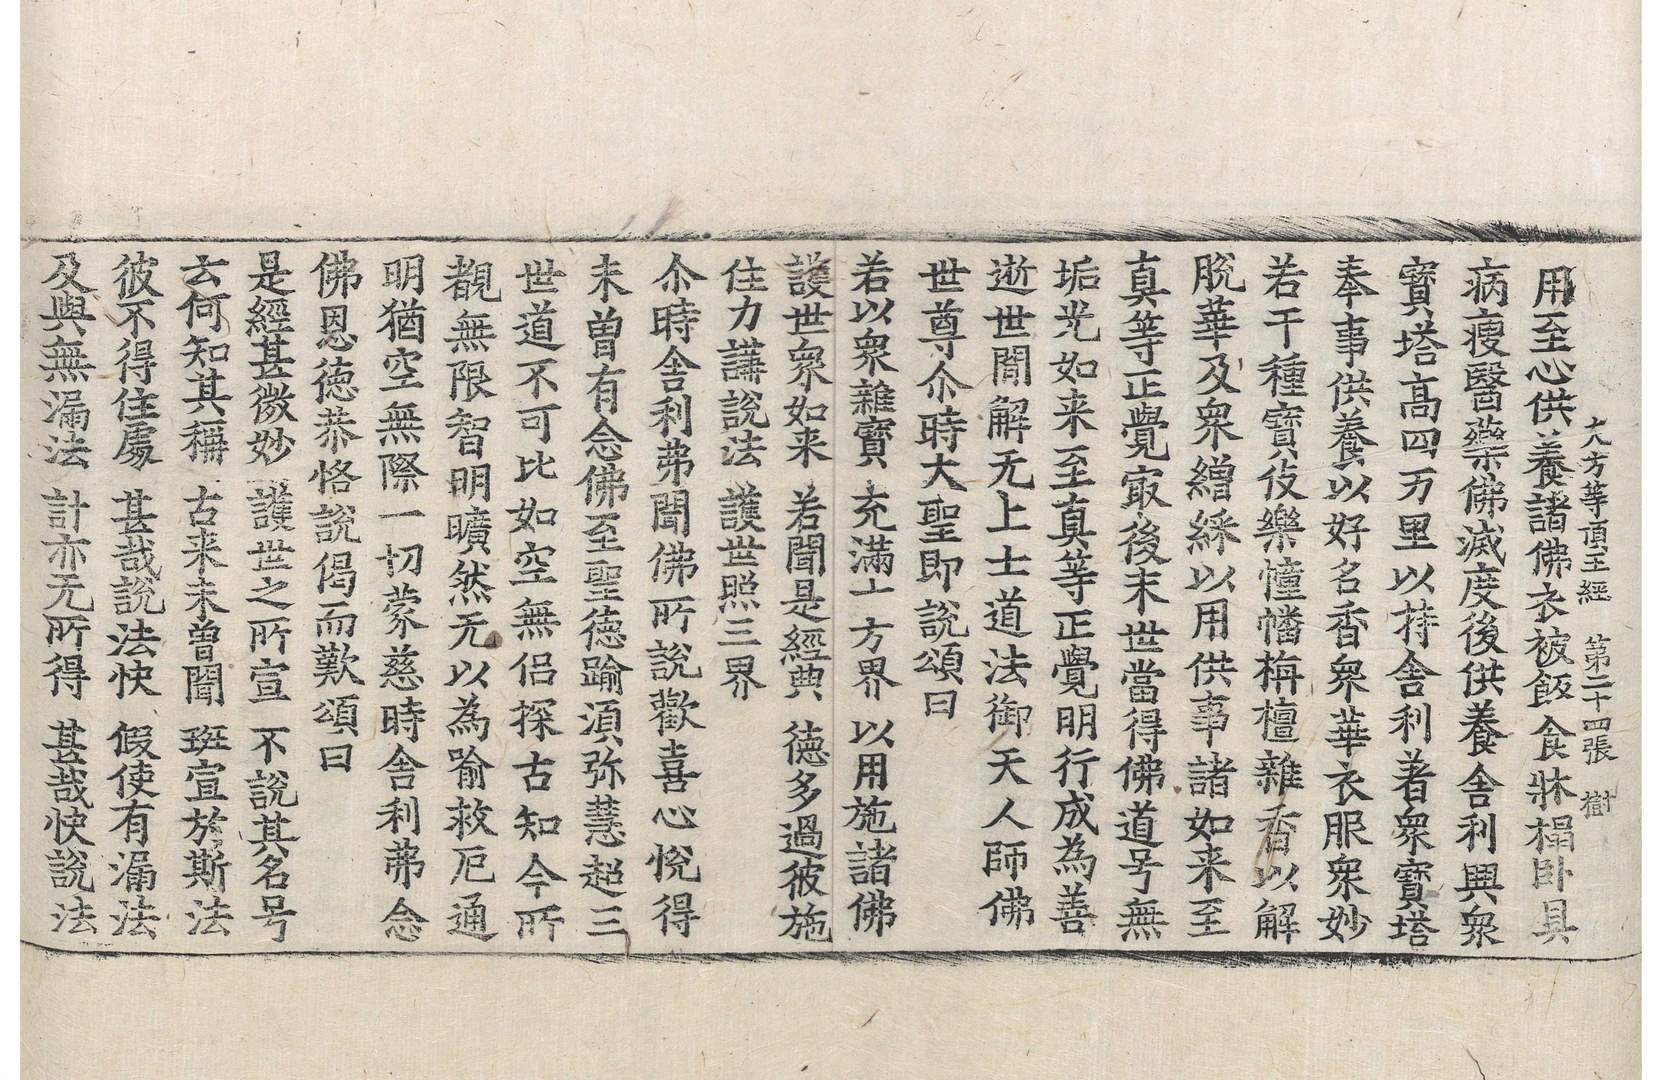 大方等頂王經 第二十四張 樹
用至心供養諸佛衣被飯食牀榻卧具
病瘦醫藥佛滅度後供養舍利興衆
寳塔高四万里以持舍利著衆寳塔
奉事供養以好名香衆華衣服衆妙
若干種寳伎樂幢幡栴檀雜香以解
脫華及衆繒綵以用供事諸如来至
真等正覺㝡後末世當得佛道号無
垢光如来至真等正覺明行成為善
逝世閒解无上士道法御天人師佛
世尊尒時大聖即說頌曰
若以衆雜寳 充滿十方界 以用施諸佛
護世衆如来 若聞是經典 德多過彼施
住力講說法 護世照三界
尒時舍利弗聞佛所說歡喜心悅得
未曾有念佛至聖德踰湏弥慧超三
世道不可比如空無侣探古知今所
覩無限智明曠然无以為喻救厄通
明猶空無際一切蒙慈時舍利弗念
佛恩德恭恪說偈而歎頌曰
是經甚微妙 護世之所宣 不說其名号
云何知其稱 古来未曾聞 班宣於斯法
彼不得住處 甚哉說法快 假使有漏法
及與無漏法 計亦无所得 甚哉快說法